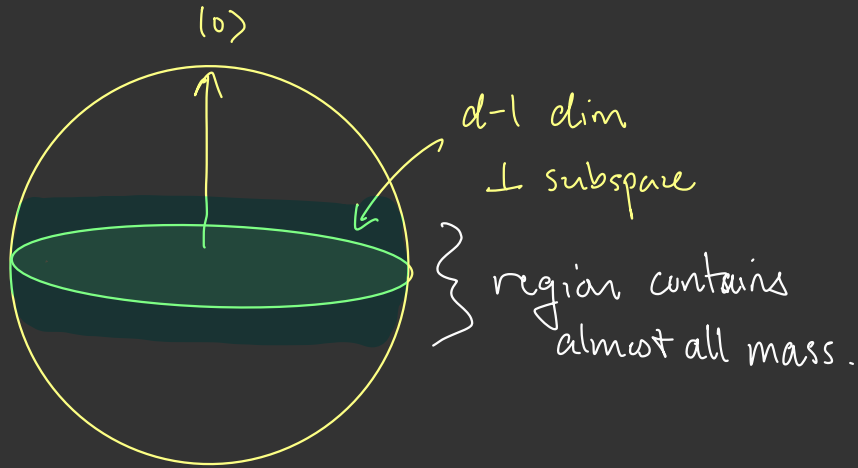 |0>
d-1 dim
⊥ subspace
region contains
almost all mass.